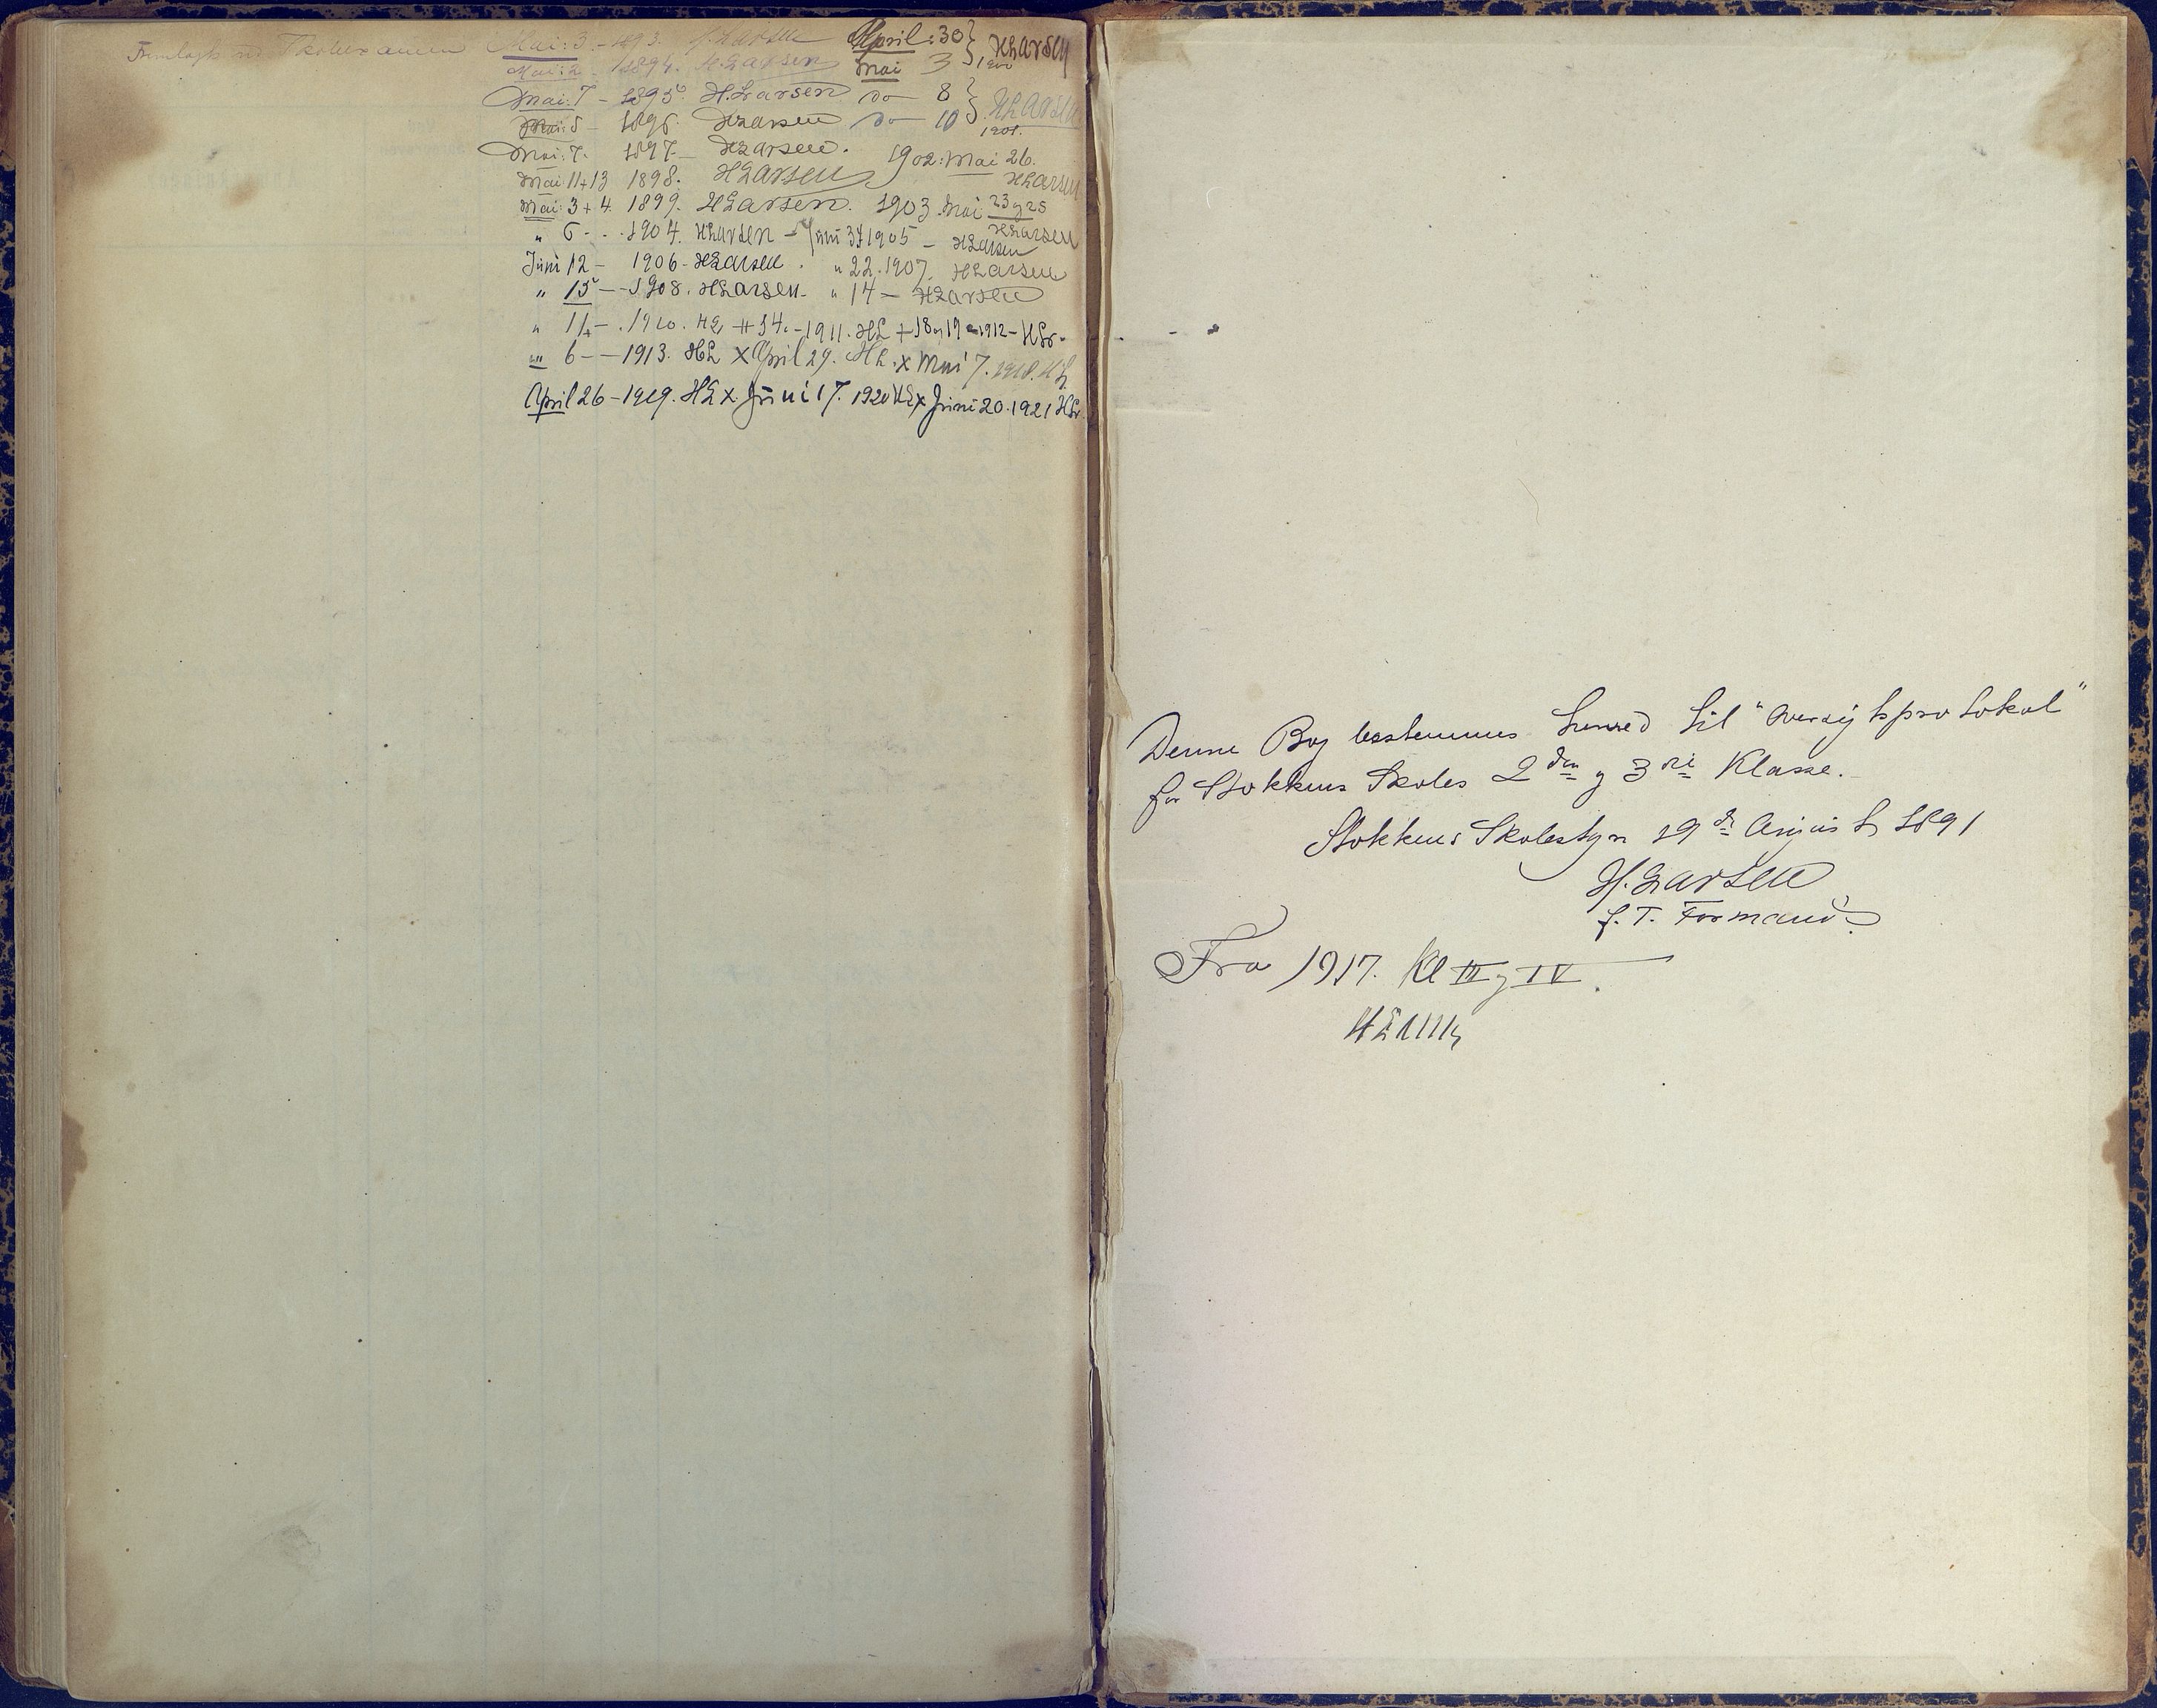 Fremlagt ved Skolexamen Mai: 3. - 1893. H. Larsen April: 30 } HLarsen
Mai: 2 - 1894. H. Larsen Mai 3 } 1900
Mai: 7 - 1895. H. Larsen do - 8 } HLarsen
Mai: 5 - 1896. HLarsen do - 10 } 1901.
Mai: 7. 1897 - HLarsen. 1902: Mai 26.
Mai 11 + 13 1898. HLarsen HLarsen
Mai: 3 + 4. 1899. HLarsen. 1903. Mai 23 og 25 HLarsen
" 6 - . . 1904. HLarsen - Juni 1905 - HLarsen
Juni 12 - 1906 - HLarsen. " 22. 1907. HLarsen
" 15 - - 1908. HLarsen - " 14 - HLarsen
" 14 - . 1910. HL + 14. - 1911. HL + 18 og 19 - 1912 - HLr -
" 6 - - 1913. HL x April 29. HL. x Mai 7. 1918. HL
April 26 - 1919. HL x. Juni 17. 1920 HL x Juni 20. 1921 HLr.
Denne Bog bestemmes herved til "Oversigtsprotokol"
for Stokkens Skoles 2den og 3die Klasse.
Stokkens Skolestyre 19de August 1891
H. Larsen
f. T. Formand.
Fra 1917. Kl III og IV.